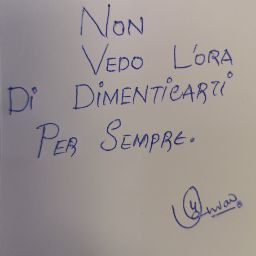 NON
VEDO L'ORA
DI DIMENTICARTI
PER SEMPRE.